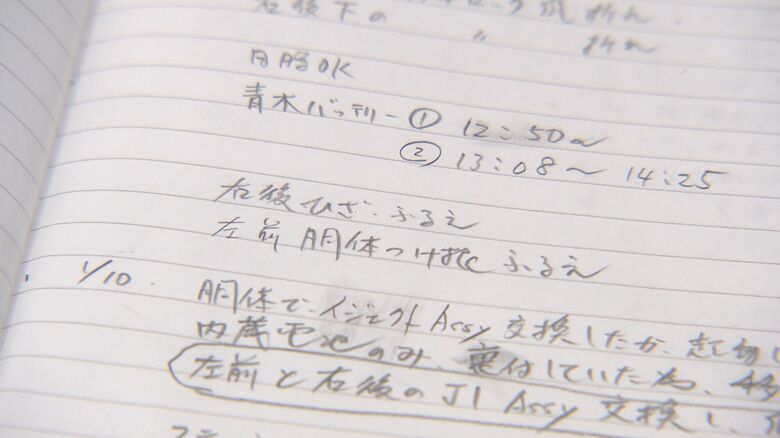 右後下の 〃 爪折れ
〃 折れ
月膳OK
青木バッテリー ① 12:50~
② 13:08〜 14:25
右後ひざ ふるえ
左前 胴体つけ根 ふるえ
1/10 胴体で、イジェクトAssy 交換したが、
内蔵電池のみ、裏付していた為、
左前と右後のJ1 Assy 交換し、